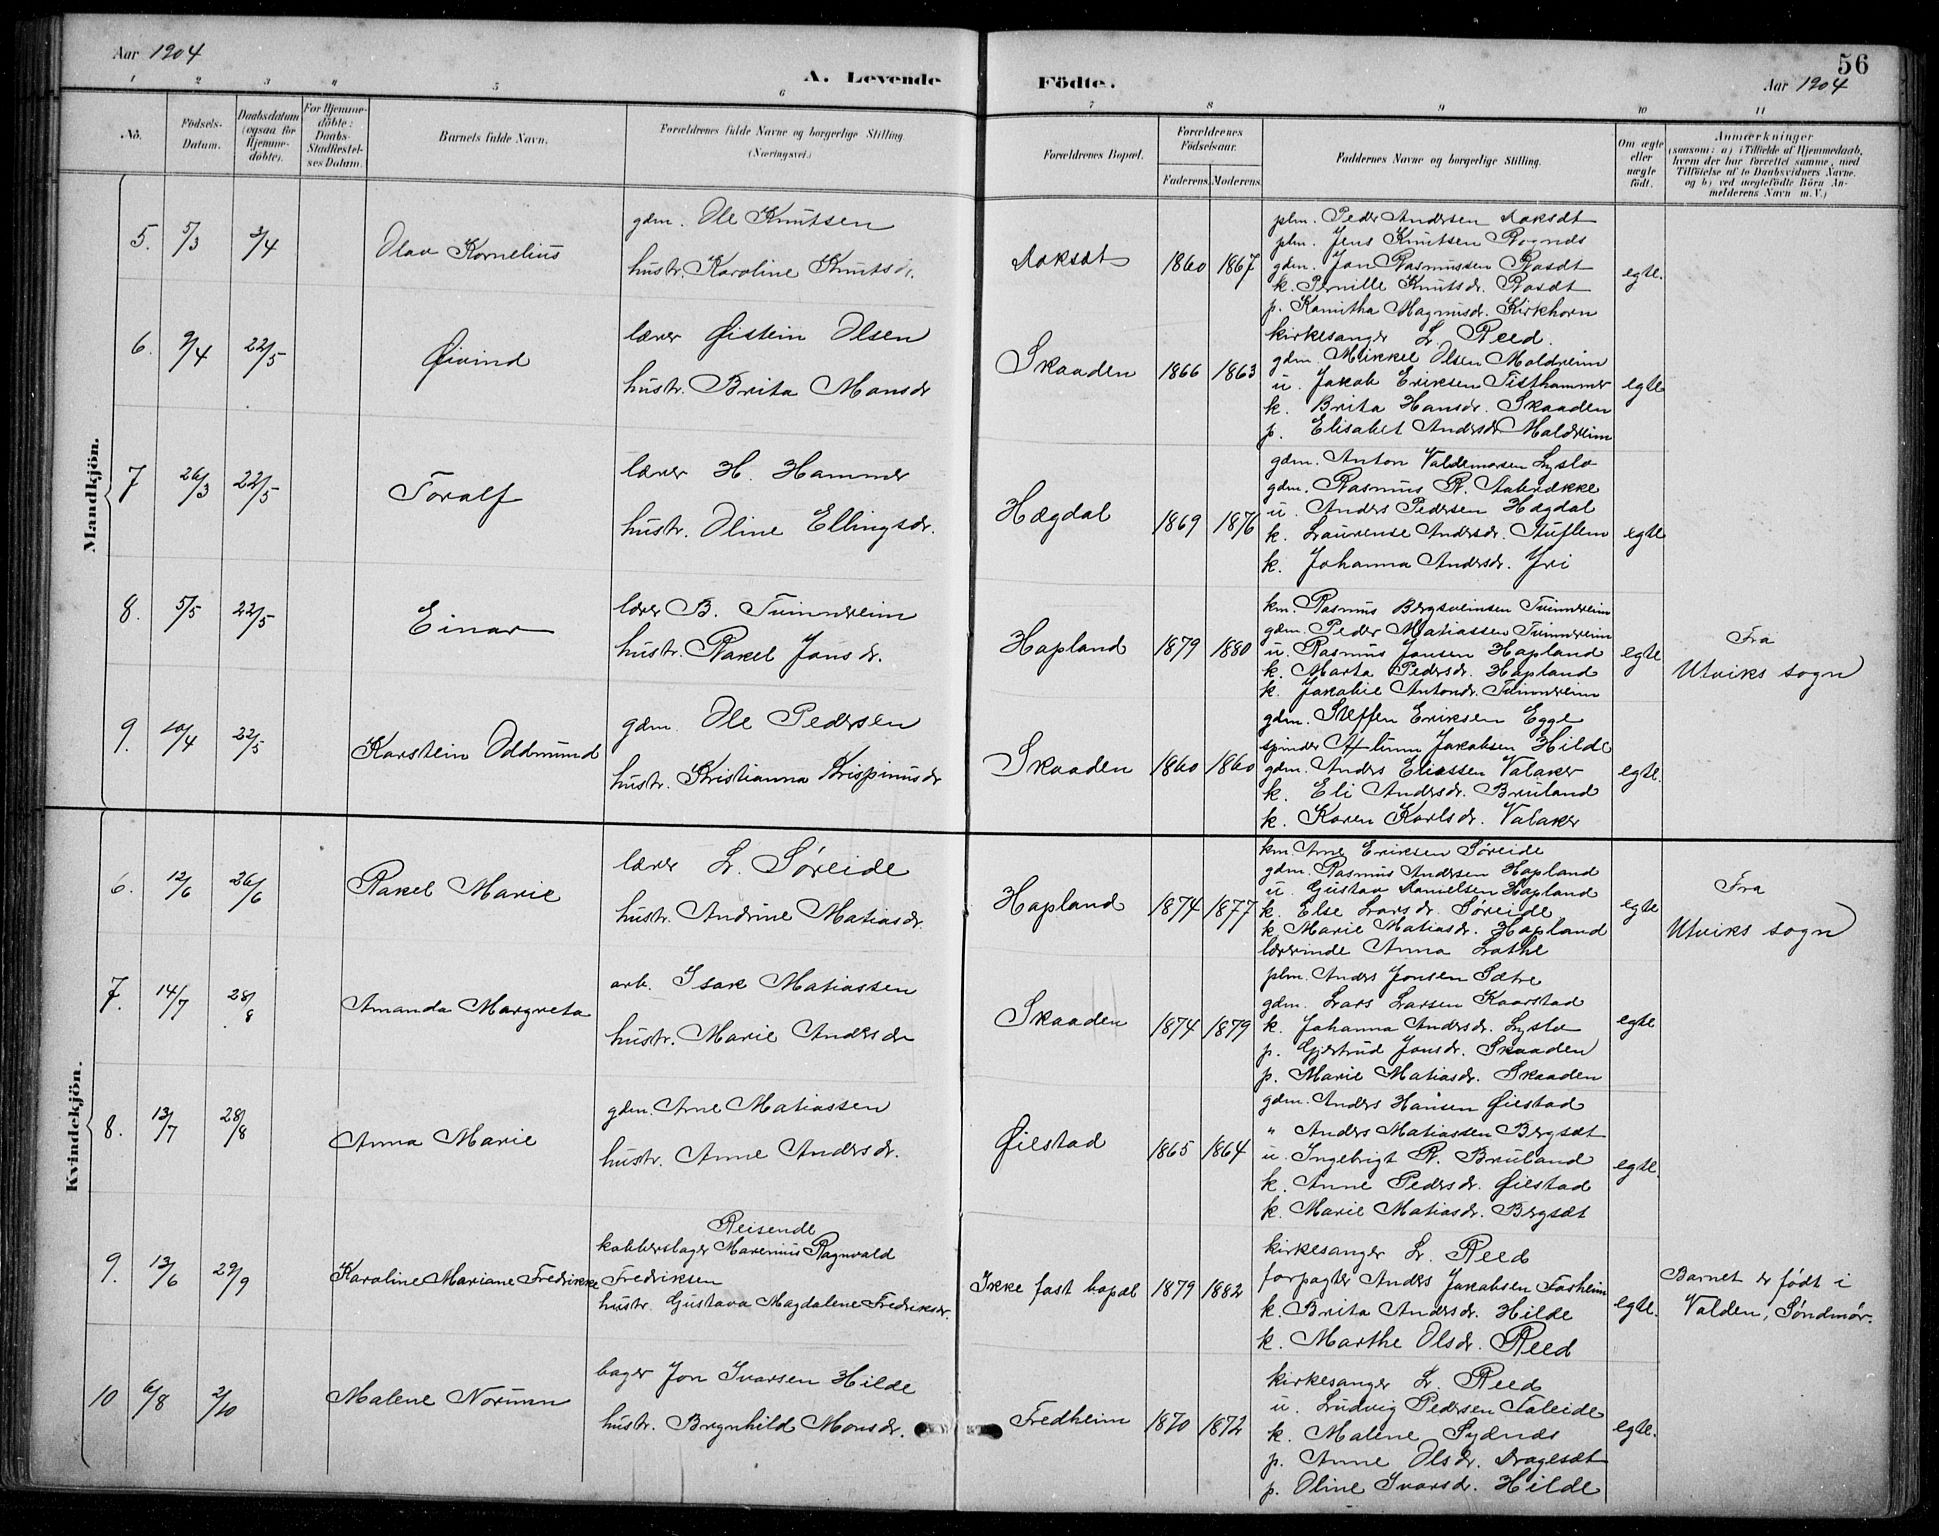 Aar 1904
A. Levende Födte.
56
Aar 1904
1 2 3 4 5 6 7 8 9 10 11
No.
Födsels-Datum.
Daabsdatum (ogsaa for Hjemme-döbte).
For Hjemme-döbte: Daabs-Stadfæstel-ses Datum.
Barnets fulde Navn.
Forældrenes fulde Navne og borgerlige Stilling. (Næringsvei.)
Forældrenes Bopæl.
Forældrenes Födselsaar.
Faderens. Moderens.
Faddernes Navne og borgerlige Stilling.
Om ægte eller uægte födt.
Anmærkninger
(saasom: a) i Tilfælde af Hjemmedaab,
hvem der har forrettet samme, med
Tilföielse af to Daabsvidners Navne,
og b) ved uægtefödte Börn An-
melderens Navn m. V.)
Mandkjön.
5. 5/3 3/4 Olav Kornelius
gdm. Ole Knutsen
hustr. Karoline Knutsdr.
1860 1867
plm. Peder Andersen
plm. Jens Knutsen Rognes
gdm. Jon Rasmussen
k. Pernille Knutsdr.
p. Kamitha Magnusdr. Kirkhorn
egte.
6. 9/4 22/5 Øivind
lærer Øistein Olsen
hustr. Brita Monsdr
Skaaden 1866 1863
kirkesanger L. Reed.
gdm. Mikkel Olsen Moldreim
u. Jakob Eriksen Tisthammer
k. Brita Hansdr. Skaaden
p. Elisabet Andersdr Moldreim
egte
7 26/3 22/5 Toralf
lærer H. Hammer
hustr. Oline Ellingsdr.
Hægdal 1869 1876
gdm. Anton Valdemarsen Lyslo
gdm. Rasmus R. Aabrække
u. Anders Pedersen Hægdal
k. Laurense Andersdr. Stuflem
k. Johanna Andersdr. Yri
egte
8. 5/5 22/5 Einar
lærer B. Tvinnereim
hustr. Rakel Jonsdr.
Hopland 1879 1880
km. Rasmus Bergsveinsen Tvinnreim
gdm. Peder Matiassen Tvinnreim
u. Rasmus Jonsen Hopland
k. Marta Pedersdr. Hopland
k. Jakobie Antondr. Tvinnreim
egte
Fra
Utviks sogn
9. 10/4 22/5 Karstein Oddmund
gdm. Ole Pedersen
hustr. Kristianna Krispinusdr
Skaaden 1860 1860
gdm. Steffen Eriksen Egge
spinder Jakobsen Hilde
gdm. Anders Eliassen Valaker
k. Eli Andersdr. Bruland
k. Karen Karlsdr. Valaker
egte.
Kvindekjön.
6. 12/6 26/6 Rakel Marie
lærer L. Søreide
hustr. Andrine Matiasdr.
Hopland 1874 1877
km. Arne Eriksen Søreide
gdm. Rasmus Andersen Hopland
u. Gustav Danielsen Hopland
k. Else Larsdr. Søreide
k. Marie Matiasdr. Hopland
lærerinde Anna Lothe
egte
Fra
Utviks sogn
7. 14/7 28/8 Amanda Margreta
arb. Isak Matiassen
hustr. Marie Andersdr
Skaaden 1874 1879
plm. Anders Jonsen Sætre
gdm. Lars Larsen Kaarstad
k. Johanna Andersdr. Lyslo
p. Gjertrud Jonsdr. Skaaden
p. Marie Matiasdr. Skaaden
egte
8. 13/7 28/8 Anna Marie
gdm. Arne Matiassen
hustr. Anne Andersdr.
Øiestad 1865 1864
gdm. Anders Hansen Øiestad
" Anders Matiassen Bergsæt
u. Ingebrigt R. Bruland
k. Anne Pedersdr. Øiestad
k. Marie Matiasdr. Bergsæt
egte.
9. 13/6 29/9 Karoline Mariane Fredrikke
Reisende
kobberslager Marenius Ragnvald
Fredriksen
hustr. Gustava Magdalene Fredriksdr.
Ikke fast bopæl 1879 1882
kirkesanger L. Reed
forpagter Anders Jakobsen Forheim
k. Brita Andersdr. Hilde
k. Marthe Olsdr. Reed
egte.
Barnet er født i
Valden, Søndmør.
10 6/8 2/10 Malene Norunn
bager Jon Ivarsen Hilde
hustr. Brynhild Monsdr.
Fredheim 1870 1872
kirkesanger L. Reed
u. Ludvig Pedersen Faleide
k. Malene Sydnes
p. Anne Olsdr. Dragesæt
p. Oline Ivarsdr. Hilde
egte.